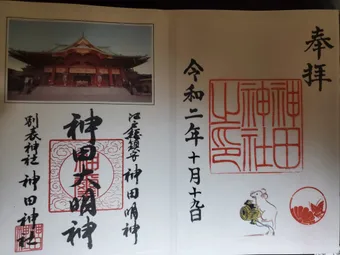 奉拝
神田
神社
之印
令和二年十月十九日
江戸総鎮守 神田明神
神田大明神
別表神社 神田神社